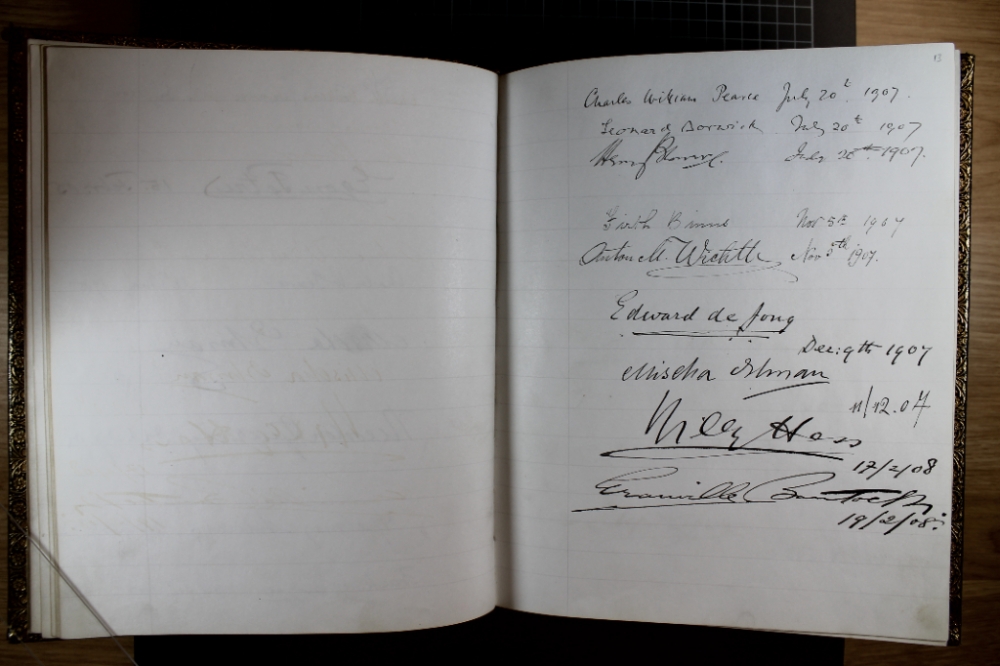 13
Charles William Pearce July 20t. 1907.
Leonard Borwick July 20t 1907
Henry July 20th. 1907.
Firth Binns Nov 5th 1907
Anton M. Nov 5th 1907.
Edward de Jong
Dec: 9th 1907
Mischa Elman
11/12.07
Willy Hess
17/2/08
Granville Bantock
19/2/08.